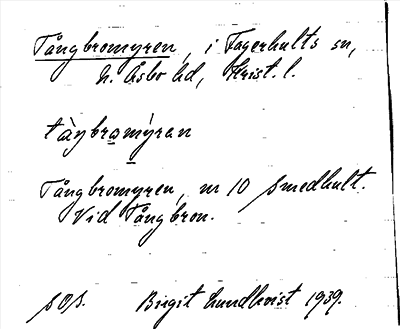 Tångbromyren, i Fagerhults sn,
N. Åsbo hd, Krist. l.
tàŋbromýran
Tångbromyren, nr 10 Smedhult.
Vid Tångbron.
SOS. Birgit Lundkvist 1939.